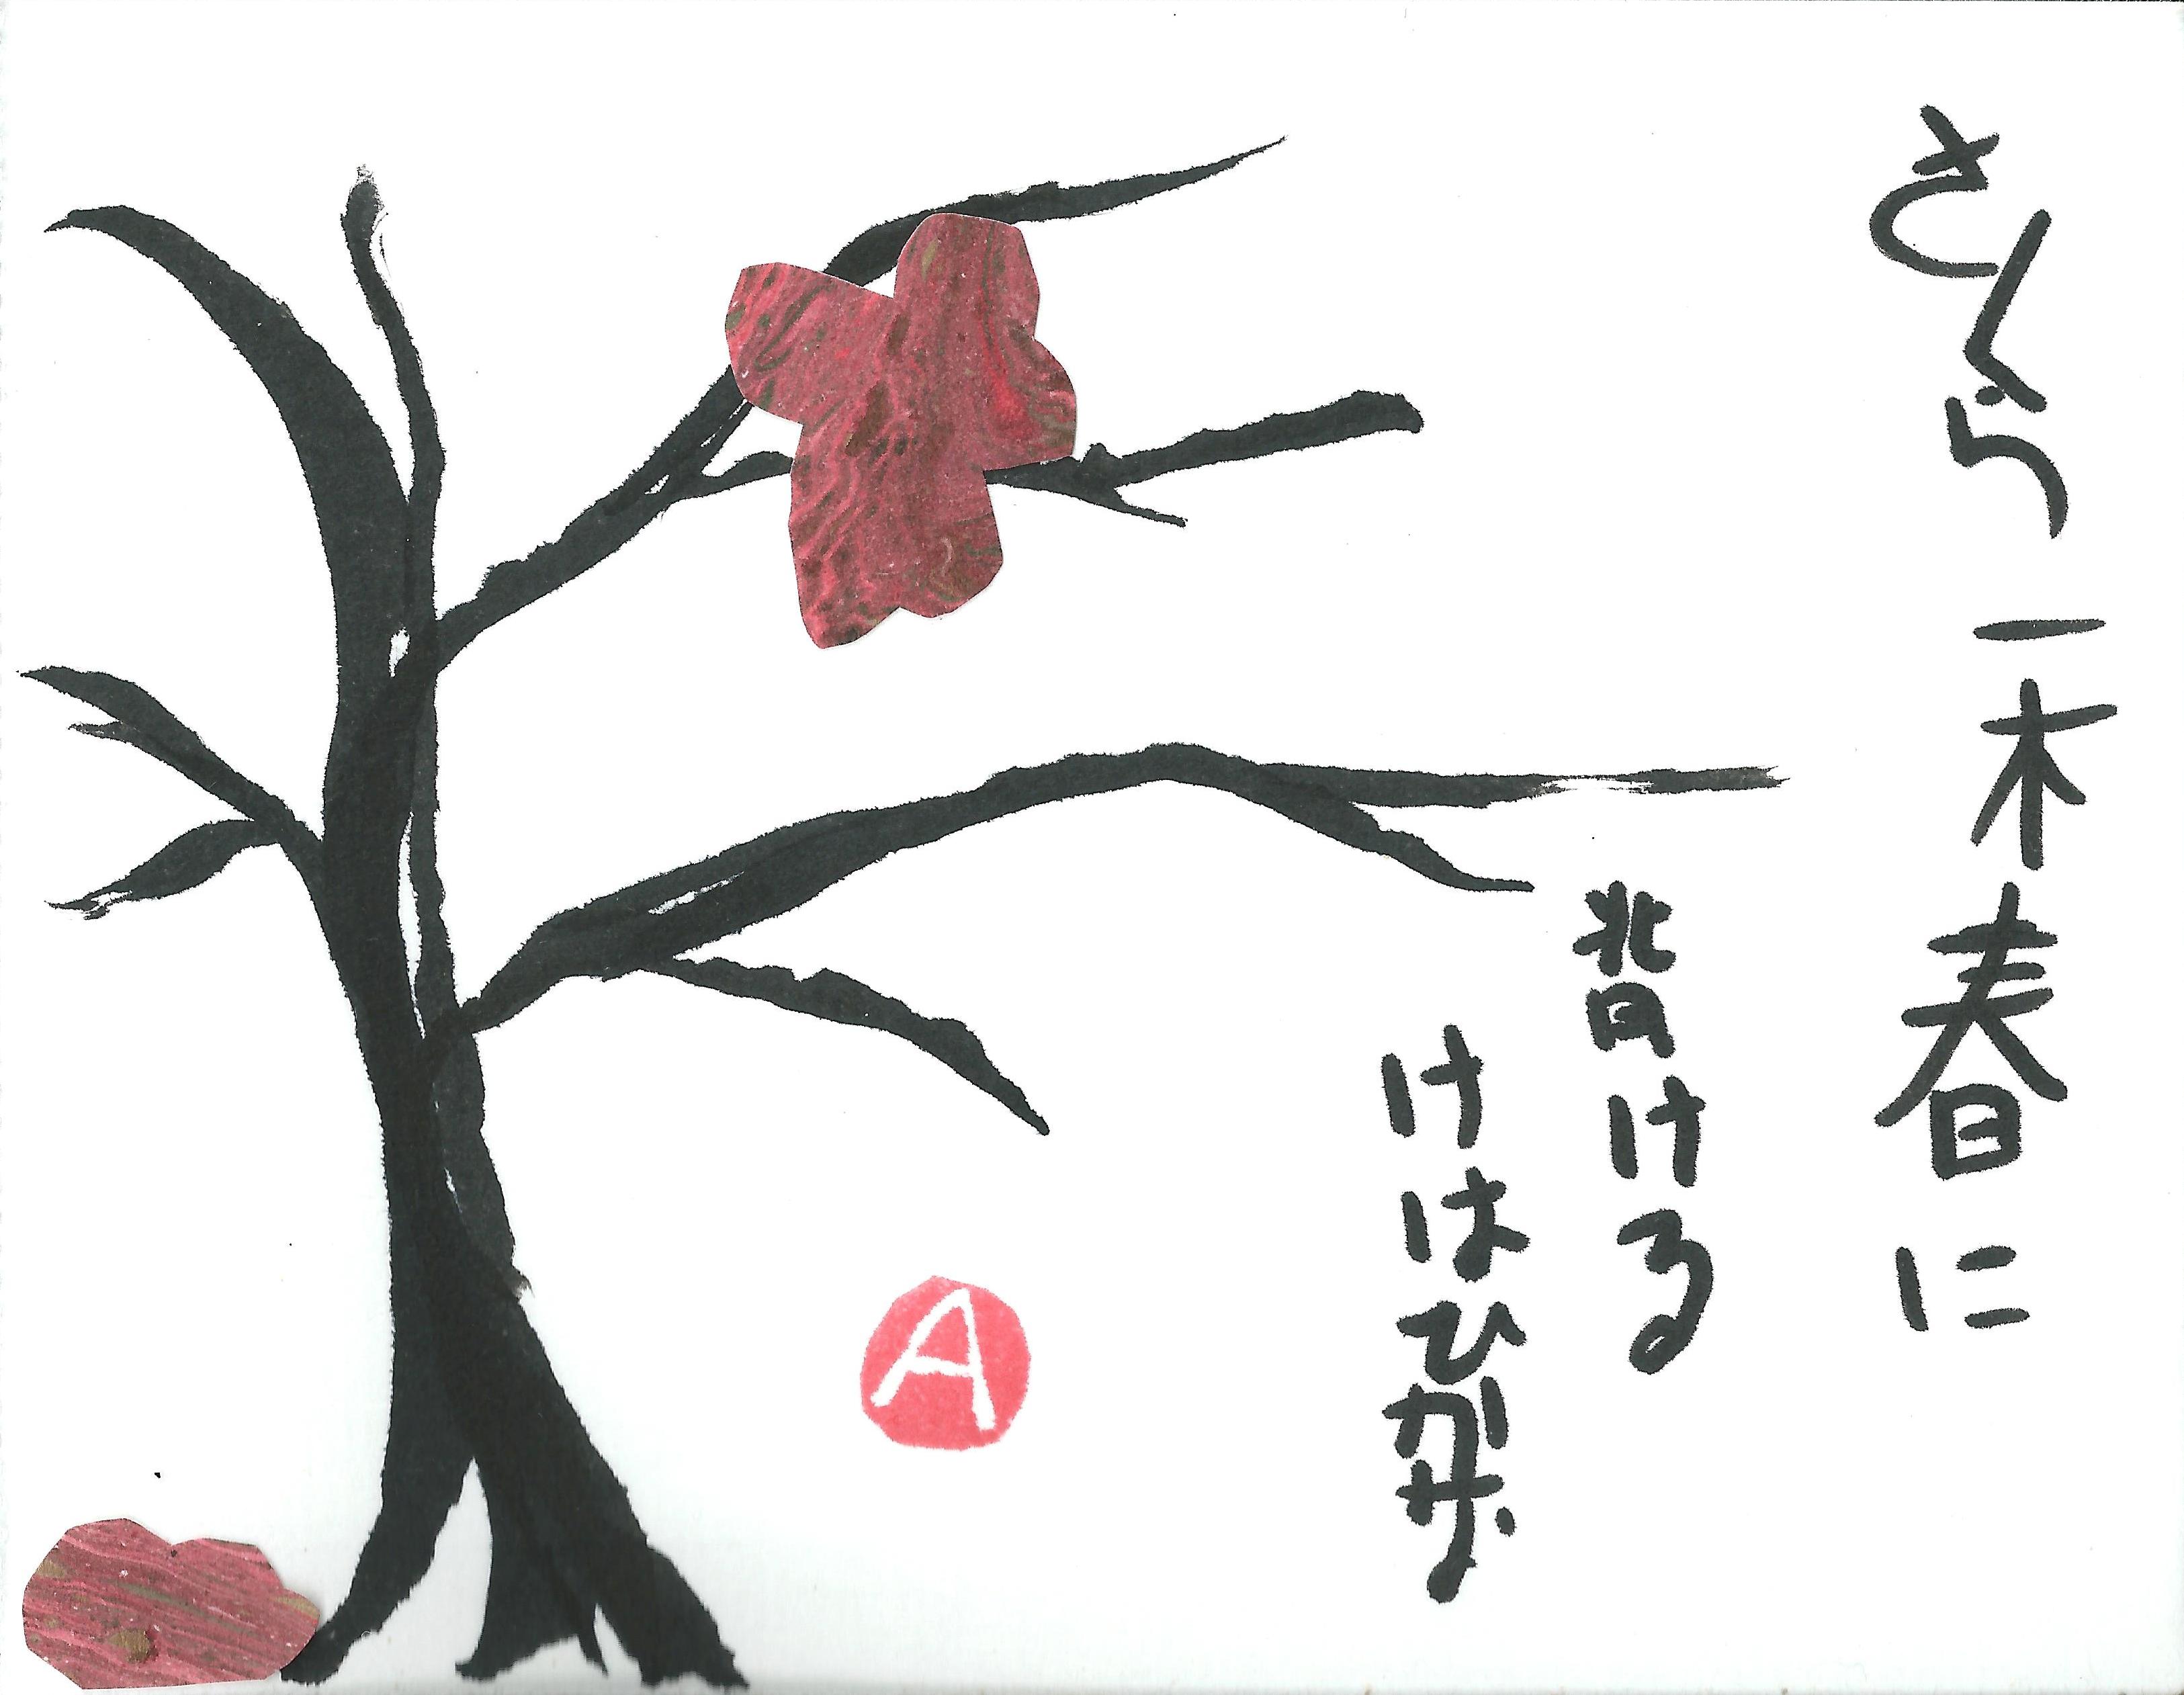 さくら一木春に
背ける
けはひかな
A